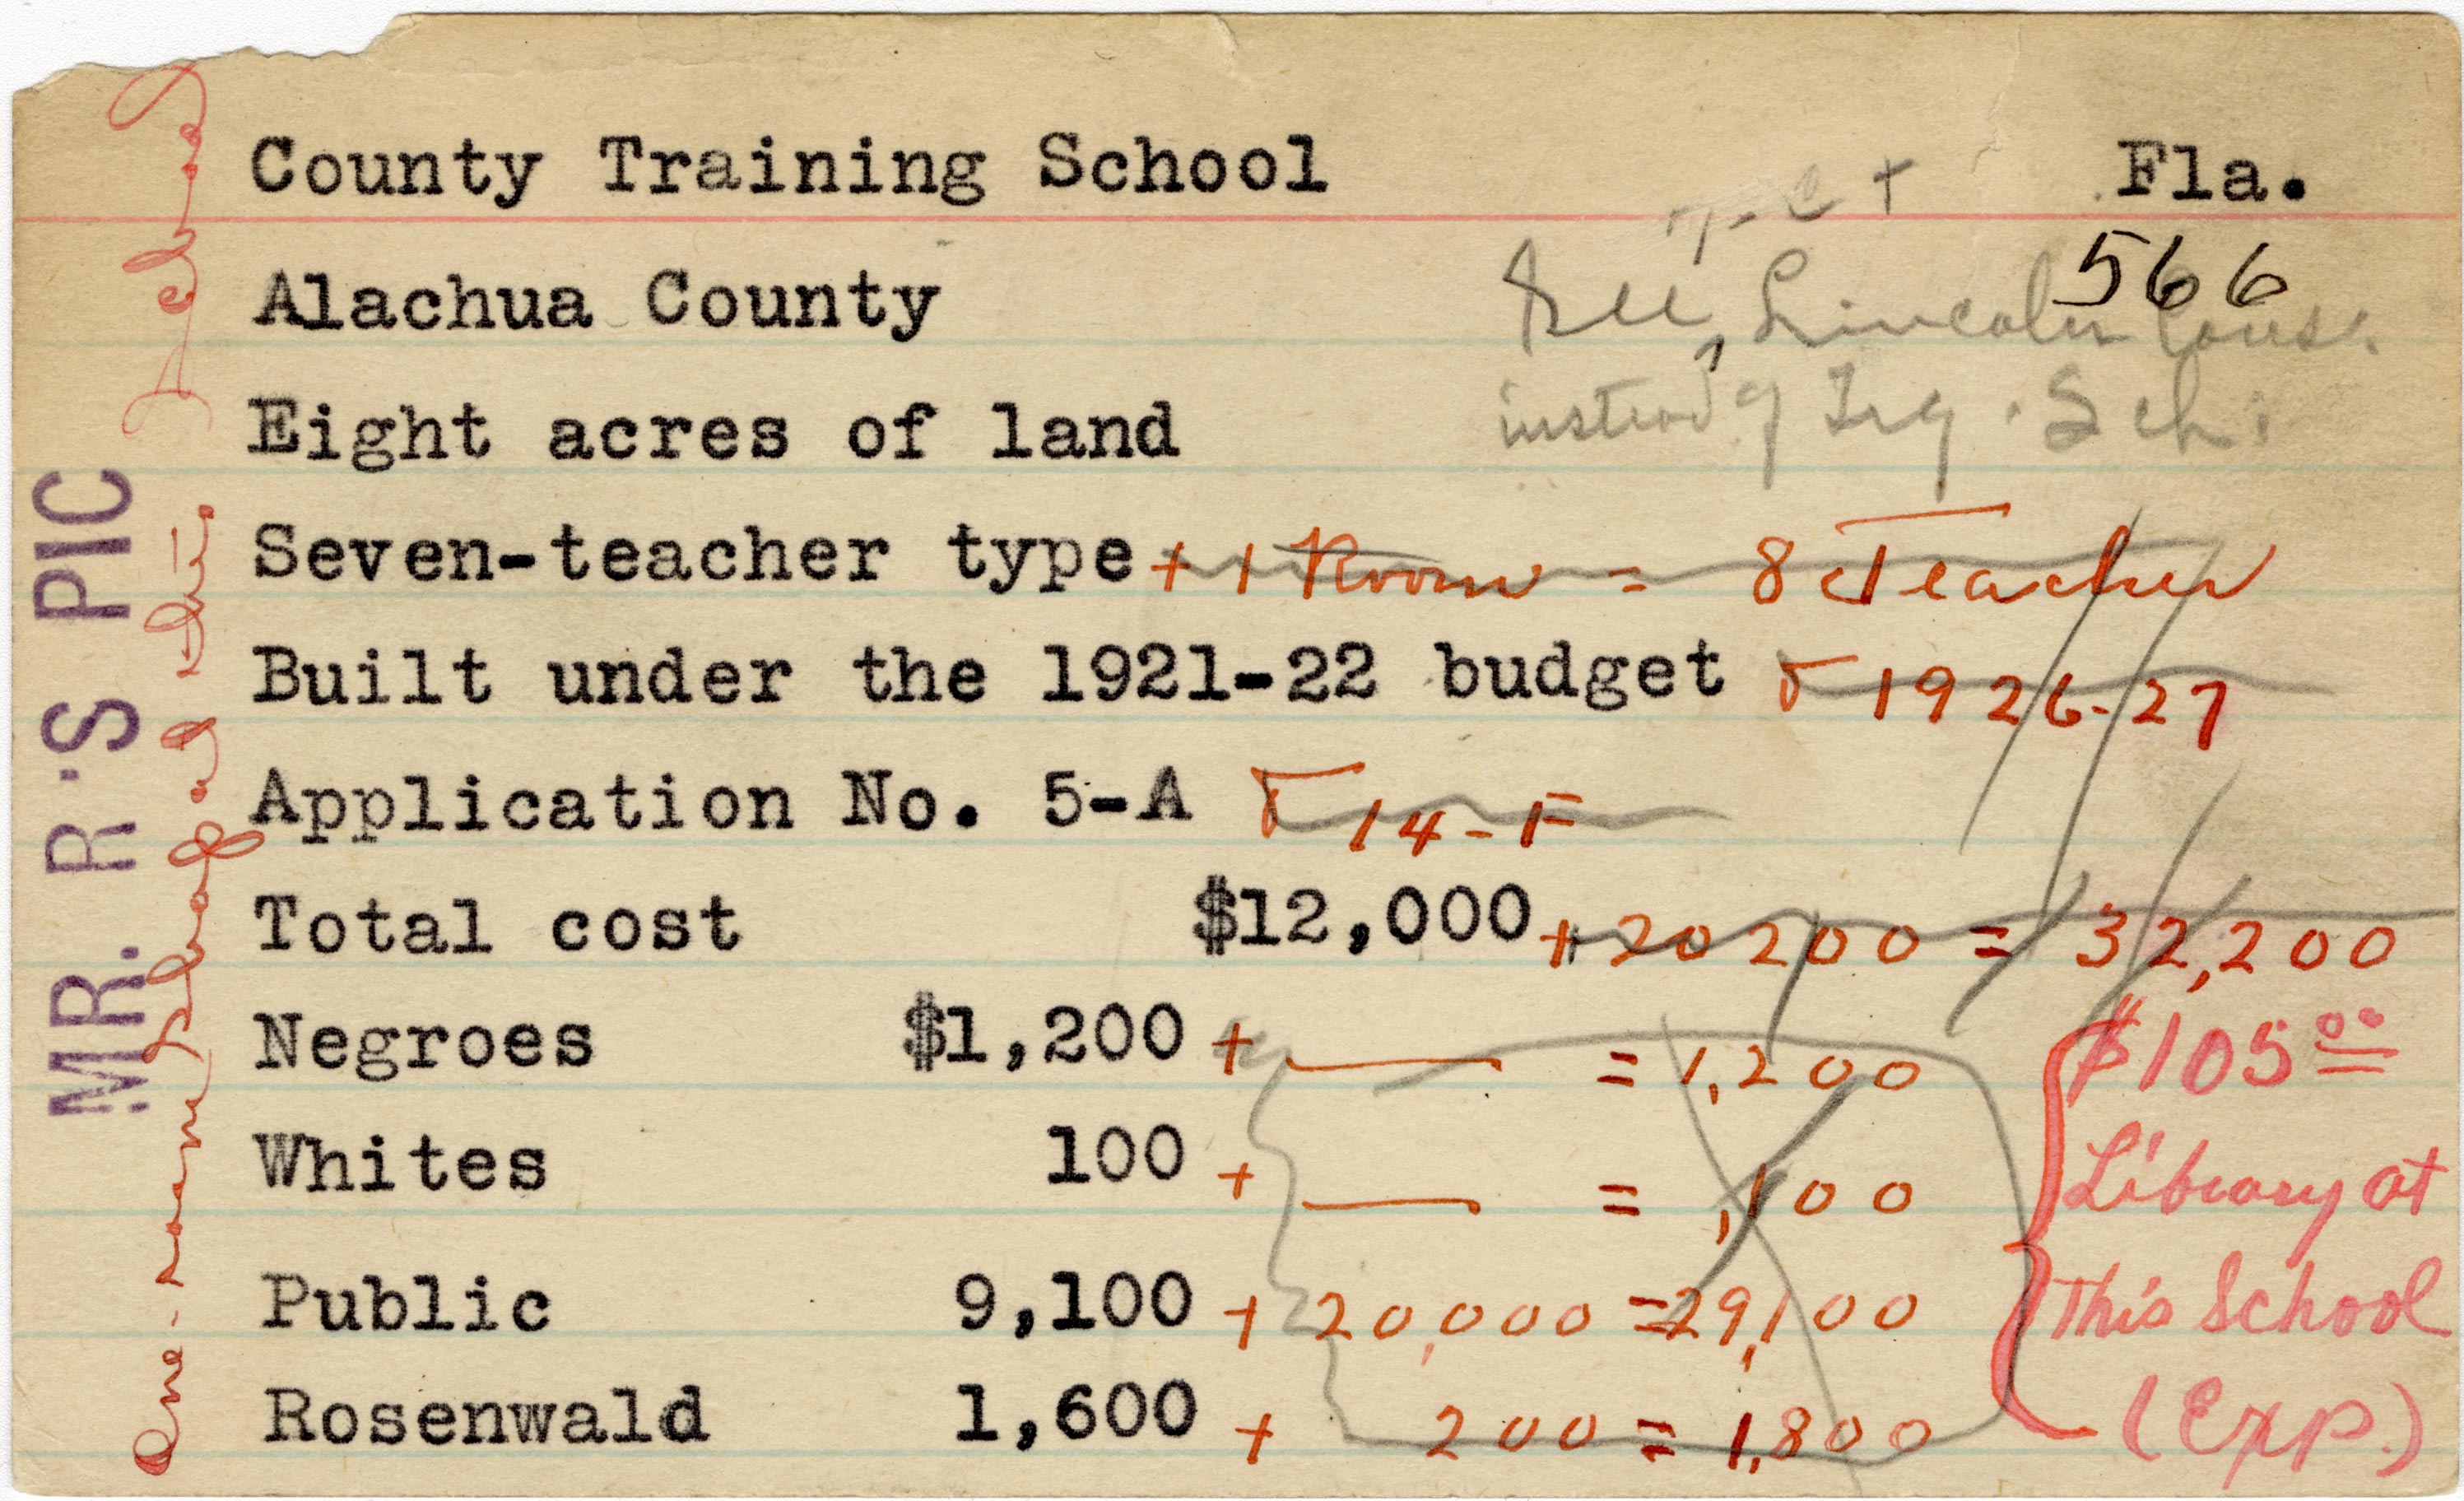 County Training School Fla.
566
Alachua County See, Lincoln Cons.
Eight acres of land instead of Trg. Sch.
Seven-teacher type + 1 Room = 8 Teacher
Built under the 1921-22 budget 1926-27
Application No. 5-A 14-F
Total cost $12,000 + 20200 = 32,200
Negroes $1,200 + — = 1,200
Whites 100 + — = ,100
Public 9,100 + 20,000 = 29,100
Rosenwald 1,600 + 200 = 1,800
$105.00
Library at
This School
(Exp.)
MR. R'S PIC
One-room shop at this School